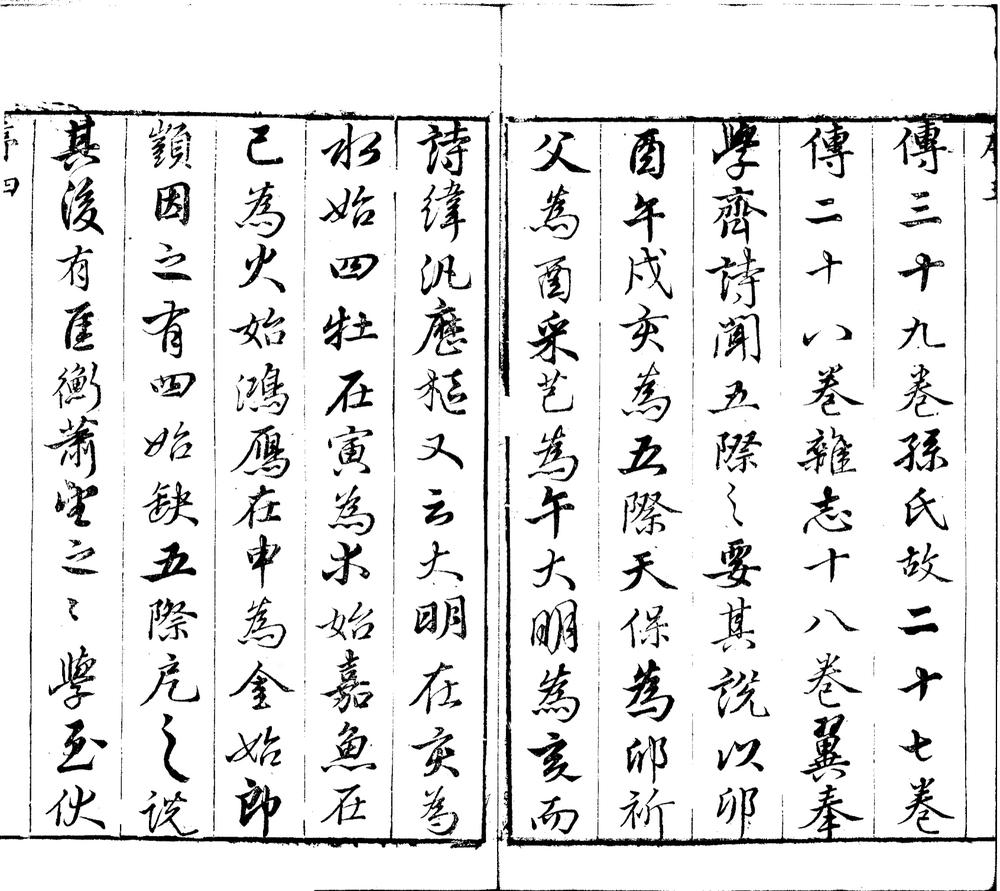 傳三十九卷孫氏故二十七卷
傳二十八卷雜志十八卷翼奉
學齊詩聞五際之要其說以卯
酉午戌亥為五際天保為卯祈
父為酉采芑為午大明為亥而
詩緯汎歷樞又云大明在亥為
水始四牡在寅為木始嘉魚在
巳為火始鴻鴈在申為金始郎
顗因之有四始缺五際戹之說
其後有匡衡蕭望之〻學至伏
序四